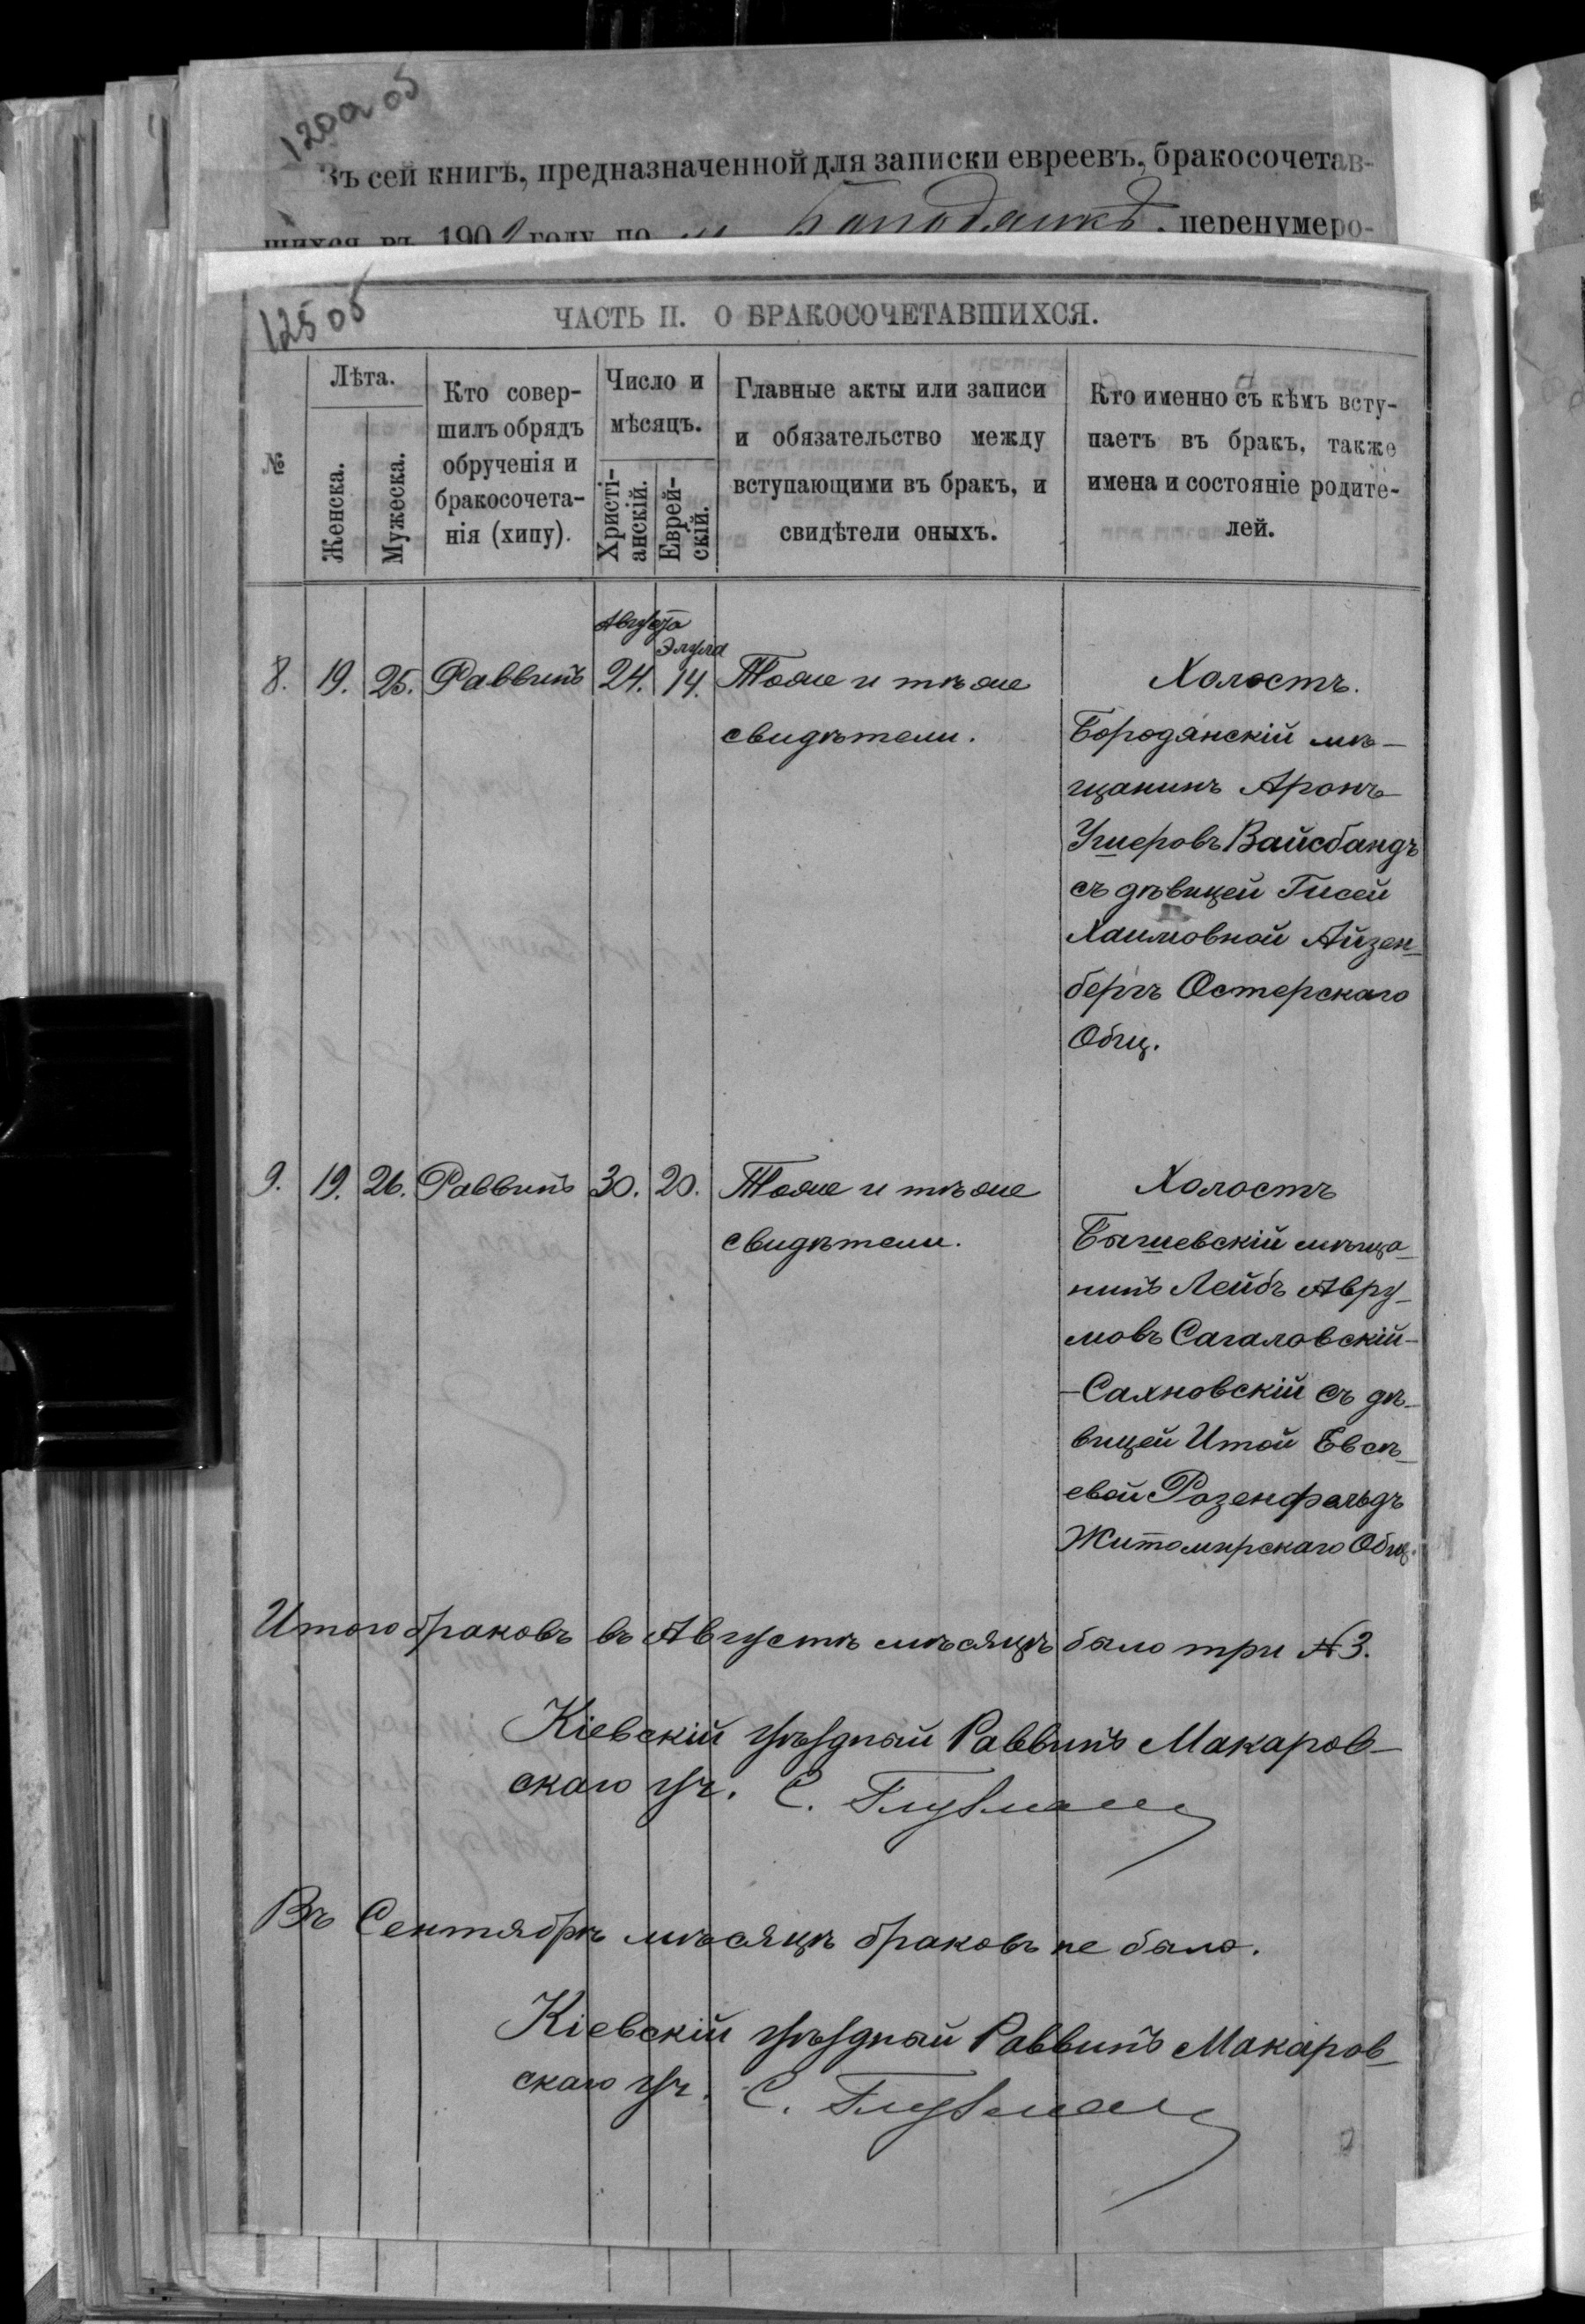 120а об
Въ сей книгѣ, предназначенной для записки евреевъ, бракосочетав-
шихся въ 190 году по м Бородянкѣ, перенумеро-
125 об
ЧАСТЬ II. О БРАКОСОЧЕТАВШИХСЯ.
№
Лѣта.
Женска.
Мужеска.
Кто совер-
шилъ обрядъ
обрученія и
бракосочета-
нія (хипу).
Число и
мѣсяцъ.
Христі-
анскій.
Еврей-
скій.
Главные акты или записи
и обязательство между
вступающими въ бракъ, и
свидѣтели оныхъ.
Кто именно съ кѣмъ всту-
паетъ въ бракъ, также
имена и состояніе родите-
лей.
Августа
Элула
8. 19. 25. Раввинъ 24. 14. Тоже и тѣ же Холостъ.
свидѣтели. Бородянскій мѣ-
щанинъ Аронъ
Ушеровъ Вайсбандъ
съ дѣвицей Гисей
Хаимовной Айзен-
бергъ Остерскаго
Общ.
9. 19. 26. Раввинъ 30. 20. Тоже и тѣ же Холостъ
свидѣтели. Бышевскій мѣща-
нинъ Лейбъ Авру-
мовъ Сагаловскій-
-Сахновскій съ дѣ-
вицей Итой Евсѣ-
евой Розенфельдъ
Житомирскаго Общ.
Итого браковъ въ Августѣ мѣсяцѣ было три №3.
Кіевскій уѣздный Раввинъ Макаров-
скаго уч. С. Глузман
Въ Сентябрѣ мѣсяцѣ браковъ не было.
Кіевскій уѣздный Раввинъ Макаров-
скаго уч. С. Глузман